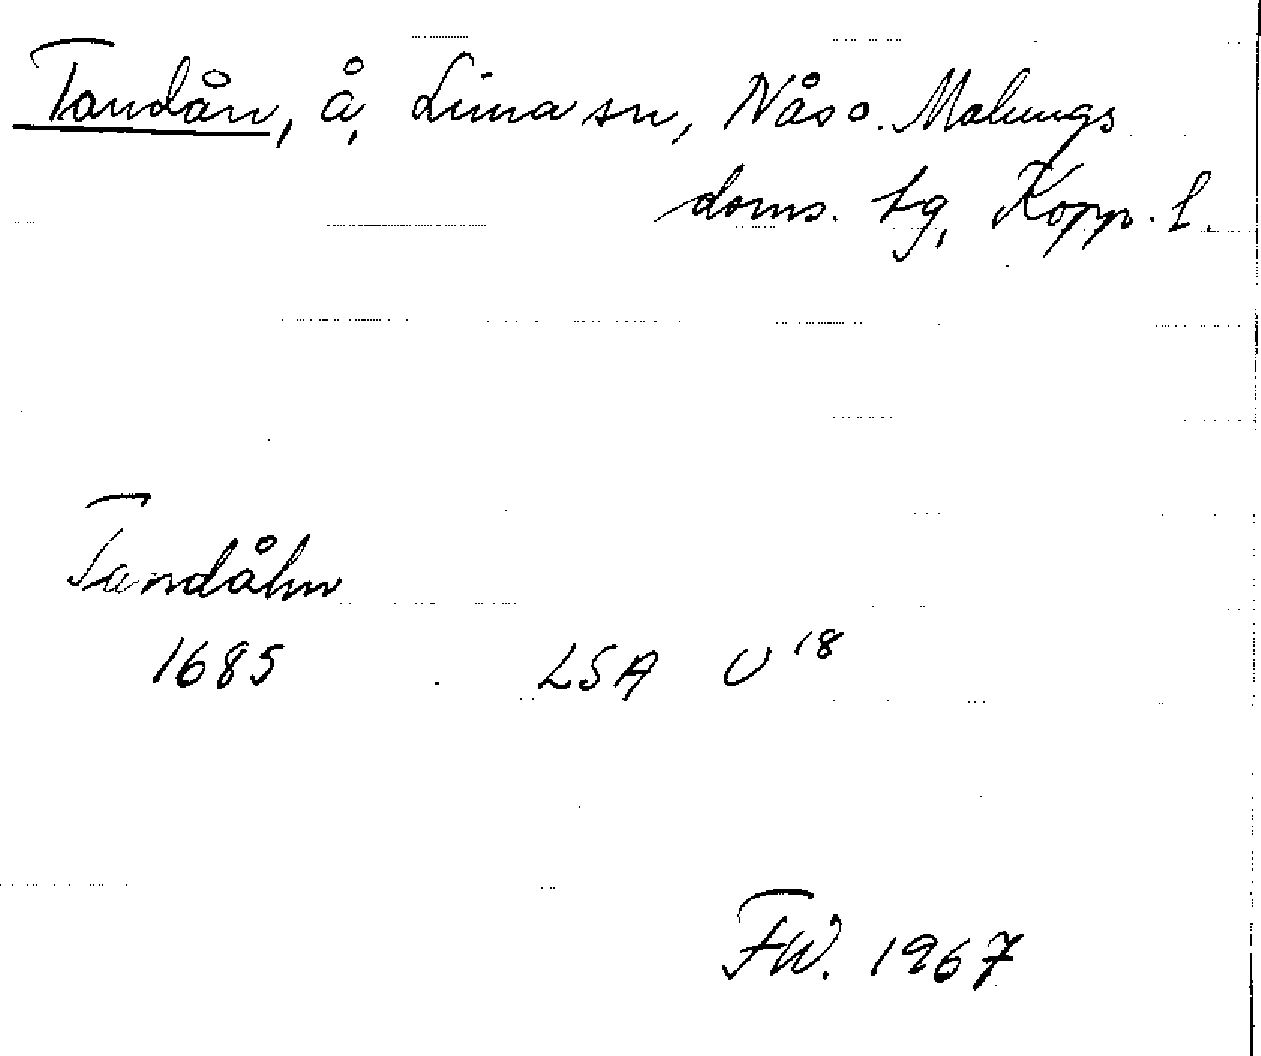 Tandån, å, Lima sn, Nås o. Malungs
doms. tg, Kopp. l.
Tandåhn
1685 LSA U 18
FW. 1967